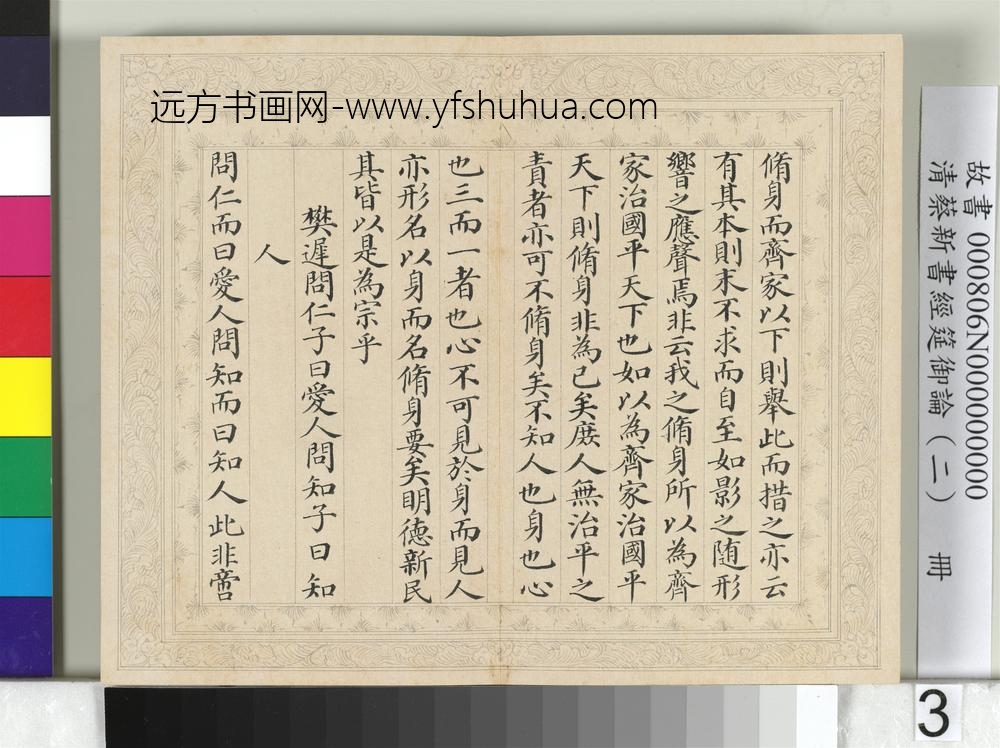 远方书画网-www.yfshuhua.com
脩身而齊家以下則舉此而措之亦云
有其本則末不求而自至如影之随形
響之應聲焉非云我之脩身所以為齊
家治國平天下也如以為齊家治國平
天下則脩身非為己矣庻人無治平之
責者亦可不脩身矣不知人也身也心
也三而一者也心不可見於身而見人
亦形名以身而名脩身要矣明德新民
其皆以是為宗乎
樊遲問仁子曰愛人問知子曰知
人
問仁而曰愛人問知而曰知人此非啻
故書 000806N000000000
清蔡新書經筵御論（二） 冊
3